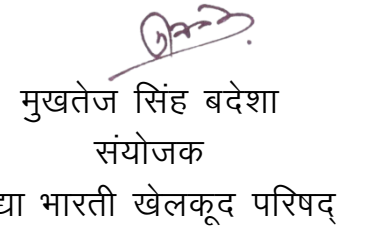 मुखतेज सिंह बदेशा
संयोजक
भारती खेलकूद परिषद्